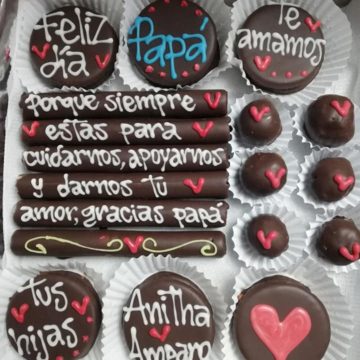 Feliz
día
Papá
Te
amamos
Porque siempre
estás para
cuidarnos, apoyarnos
y darnos tu
amor, gracias papá
Tus
hijas
Anitha
Amparo